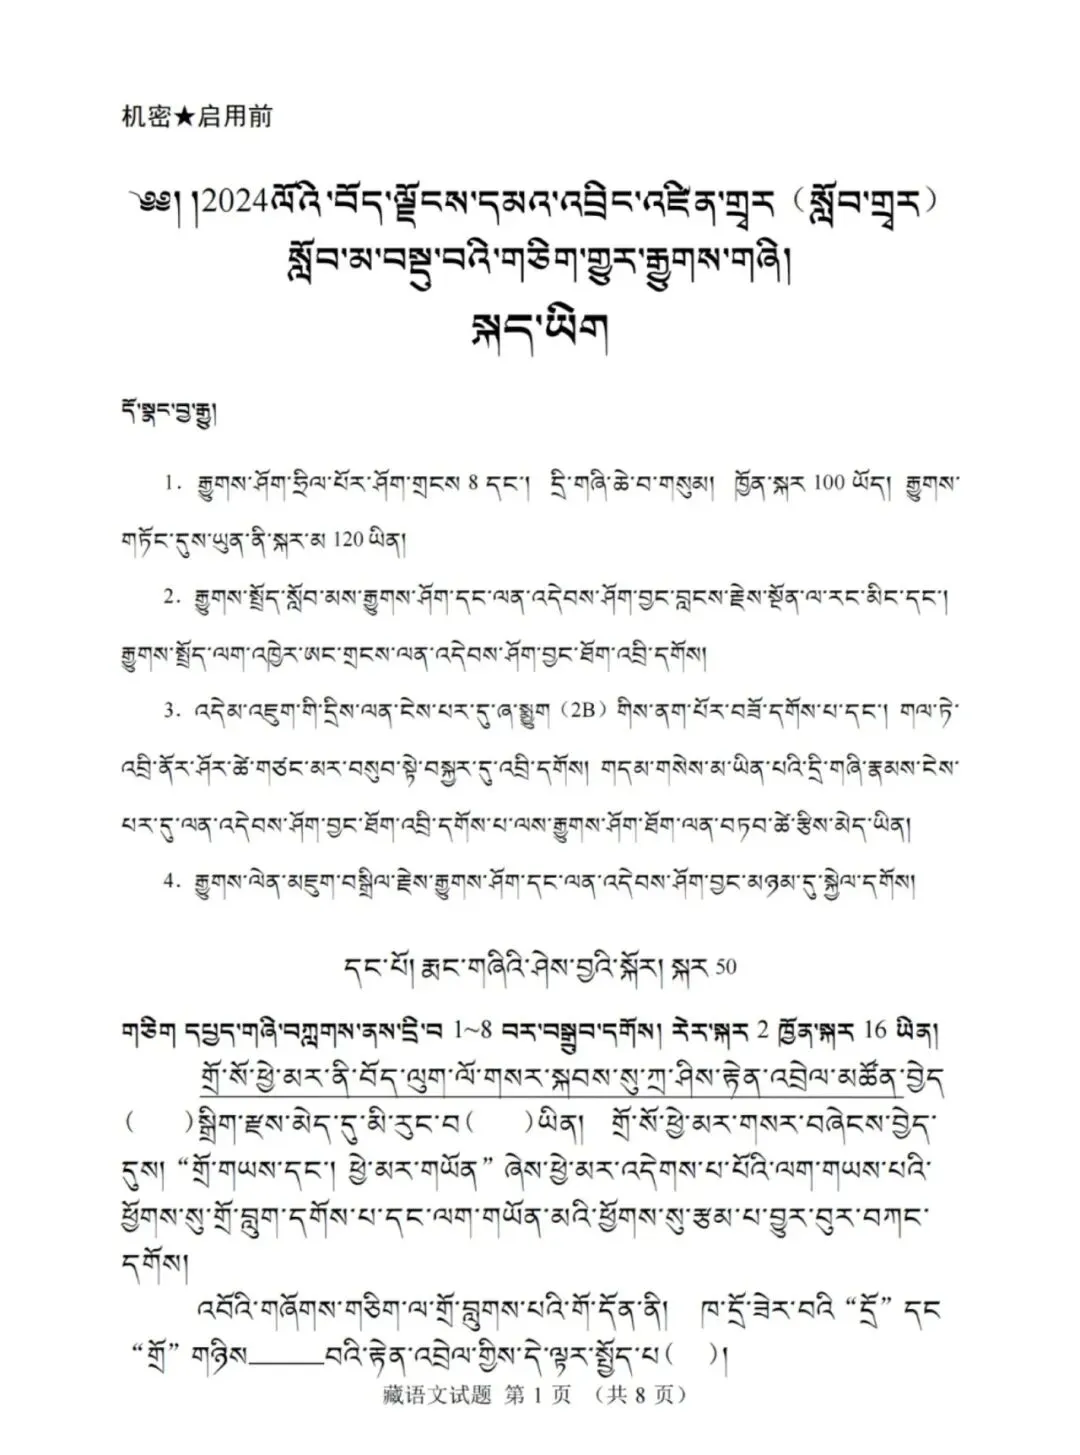 机密★启用前
༄༅། །2024ལོའི་བོད་ལྗོངས་དམའ་འབྲིང་འཛིན་གྲྭར（སློབ་གྲྭར）
སློབ་མ་བསྡུ་བའི་གཅིག་གྱུར་རྒྱུགས་གཞི།
སྐད་ཡིག
དོ་སྣང་བྱ་རྒྱུ།
1. རྒྱུགས་ཤོག་ཧྲིལ་པོར་ཤོག་གྲངས 8 དང་། དྲི་གཞི་ཆེ་བ་གསུམ། ཁྱོན་སྐར 100 ཡོད། རྒྱུགས་
གཏོང་དུས་ཡུན་ནི་སྐར་མ 120 ཡིན།
2. རྒྱུགས་སྤྲོད་སློབ་མས་རྒྱུགས་ཤོག་དང་ལན་འདེབས་ཤོག་བྱང་བླངས་རྗེས་སྔོན་ལ་རང་མིང་དང་།
རྒྱུགས་སྤྲོད་ལག་འཁྱེར་ཨང་གྲངས་ལན་འདེབས་ཤོག་བྱང་ཐོག་འབྲི་དགོས།
3. འདེམ་འཇུག་གི་དྲིས་ལན་ངེས་པར་དུ་ཞ་སྨྱུག（2B）གིས་ནག་པོར་བཟོ་དགོས་པ་དང་། གལ་ཏེ་
འབྲི་ནོར་ཤོར་ཚེ་གཙང་མར་བསུབ་སྟེ་བསྐྱར་དུ་འབྲི་དགོས། གདམ་གསེས་མ་ཡིན་པའི་དྲི་གཞི་རྣམས་ངེས་
པར་དུ་ལན་འདེབས་ཤོག་བྱང་ཐོག་འབྲི་དགོས་པ་ལས་རྒྱུགས་ཤོག་ཐོག་ལན་བཏབ་ཚེ་རྩིས་མེད་ཡིན།
4. རྒྱུགས་ལེན་མཇུག་བསྒྲིལ་རྗེས་རྒྱུགས་ཤོག་དང་ལན་འདེབས་ཤོག་བྱང་མཉམ་དུ་སྐྱེལ་དགོས།
དང་པོ། རྨང་གཞིའི་ཤེས་བྱའི་སྐོར། སྐར 50
གཅིག དཔྱད་གཞི་བཀླགས་ནས་དྲི་བ 1~8 བར་བསྒྲུབ་དགོས། རེར་སྐར 2 ཁྱོན་སྐར 16 ཡིན།
གྲོ་སོ་ཕྱེ་མར་ནི་བོད་ལུག་ལོ་གསར་སྐབས་སུ་ཀྲ་ཤིས་རྟེན་འབྲེལ་མཚོན་བྱེད
(    )སྒྲིག་རྫས་མེད་དུ་མི་རུང་བ(    )ཡིན། གྲོ་སོ་ཕྱེ་མར་གསར་བཞེངས་བྱེད་
དུས། “གྲོ་གཡས་དང་། ཕྱེ་མར་གཡོན” ཞེས་ཕྱེ་མར་འདེགས་པ་པོའི་ལག་གཡས་པའི་
ཕྱོགས་སུ་གྲོ་བླུག་དགོས་པ་དང་ལག་གཡོན་མའི་ཕྱོགས་སུ་རྩམ་པ་བྱུར་བུར་བཀང་
དགོས།
འབོའི་གཞོགས་གཅིག་ལ་གྲོ་བླུགས་པའི་གོ་དོན་ནི། ཁ་དྲོ་ཟེར་བའི “དྲོ” དང
“གྲོ” གཉིས______བའི་རྟེན་འབྲེལ་གྱིས་དེ་ལྟར་སྤྱོད་པ(    )།
藏语文试题 第 1 页 （共 8 页）